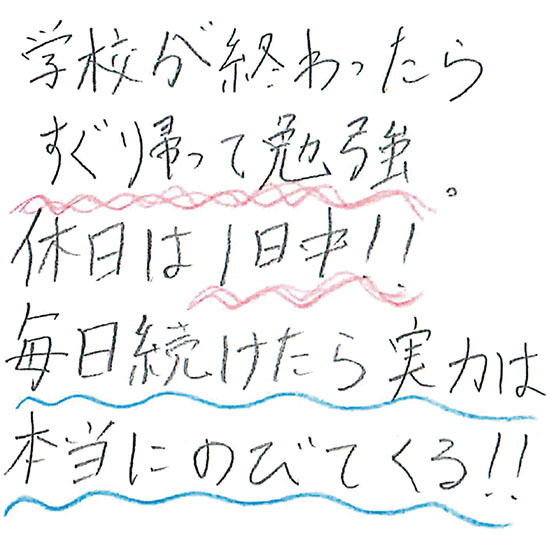 学校が終わったら
すぐり帰って勉強。
休日は1日中!!
毎日続けたら実力は
本当にのびてくる!!